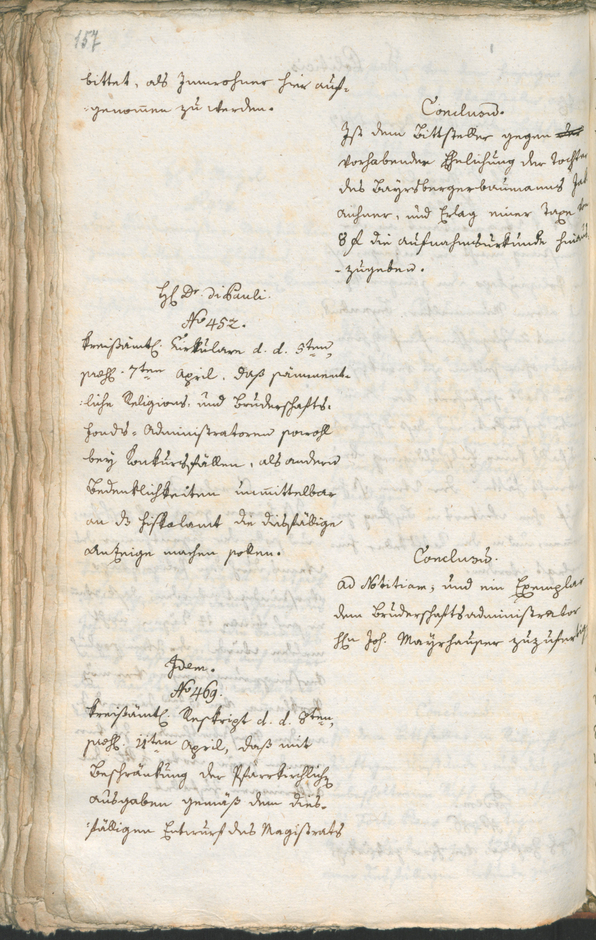 157
bittet, als Innwohner hier auf-
-genommen zu werden.
Conclusum.
Ist dem Bittsteller gegen
vorhabender Ehelichung der Tochter
des Bayrsbergerbaumanns
Aichner, und Erlag einer Taxe
8 f die Aufnahmsurkunde hinaus
-zugeben.
H. Dr. di Pauli.
No 452.
Kreisämtl. Cirkulare d. d. 5ten,
praes. 7ten April, daß sämment-
-liche Religions- und Bruderschafts-
fonds-Administratoren sowohl
bey Konkursfällen, als andern
Bedenklichkeiten unmittelbar
an das Fiskalamt die diesfällige
Anzeige machen sollen.
Conclusum.
ad Notitiam, und ein Exemplar
dem Bruderschaftsadministrator
Hrn Joh. Mayrhauser zuzufertigen
Idem.
No 469.
Kreisämtl. Reskript d. d. 8ten,
praes. 11ten April, daß mit
Beschränkung der Pfarrkirchlichen
Ausgaben gemäß dem dies-
-fälligen Entwurf des Magistrats